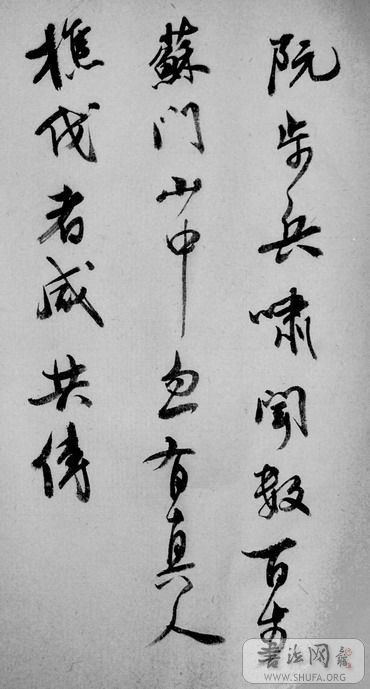 阮步兵嘯聞數百步
蘇門山中忽有真人
樵伐者咸共傳
書法网
WWW.SHUFA.ORG